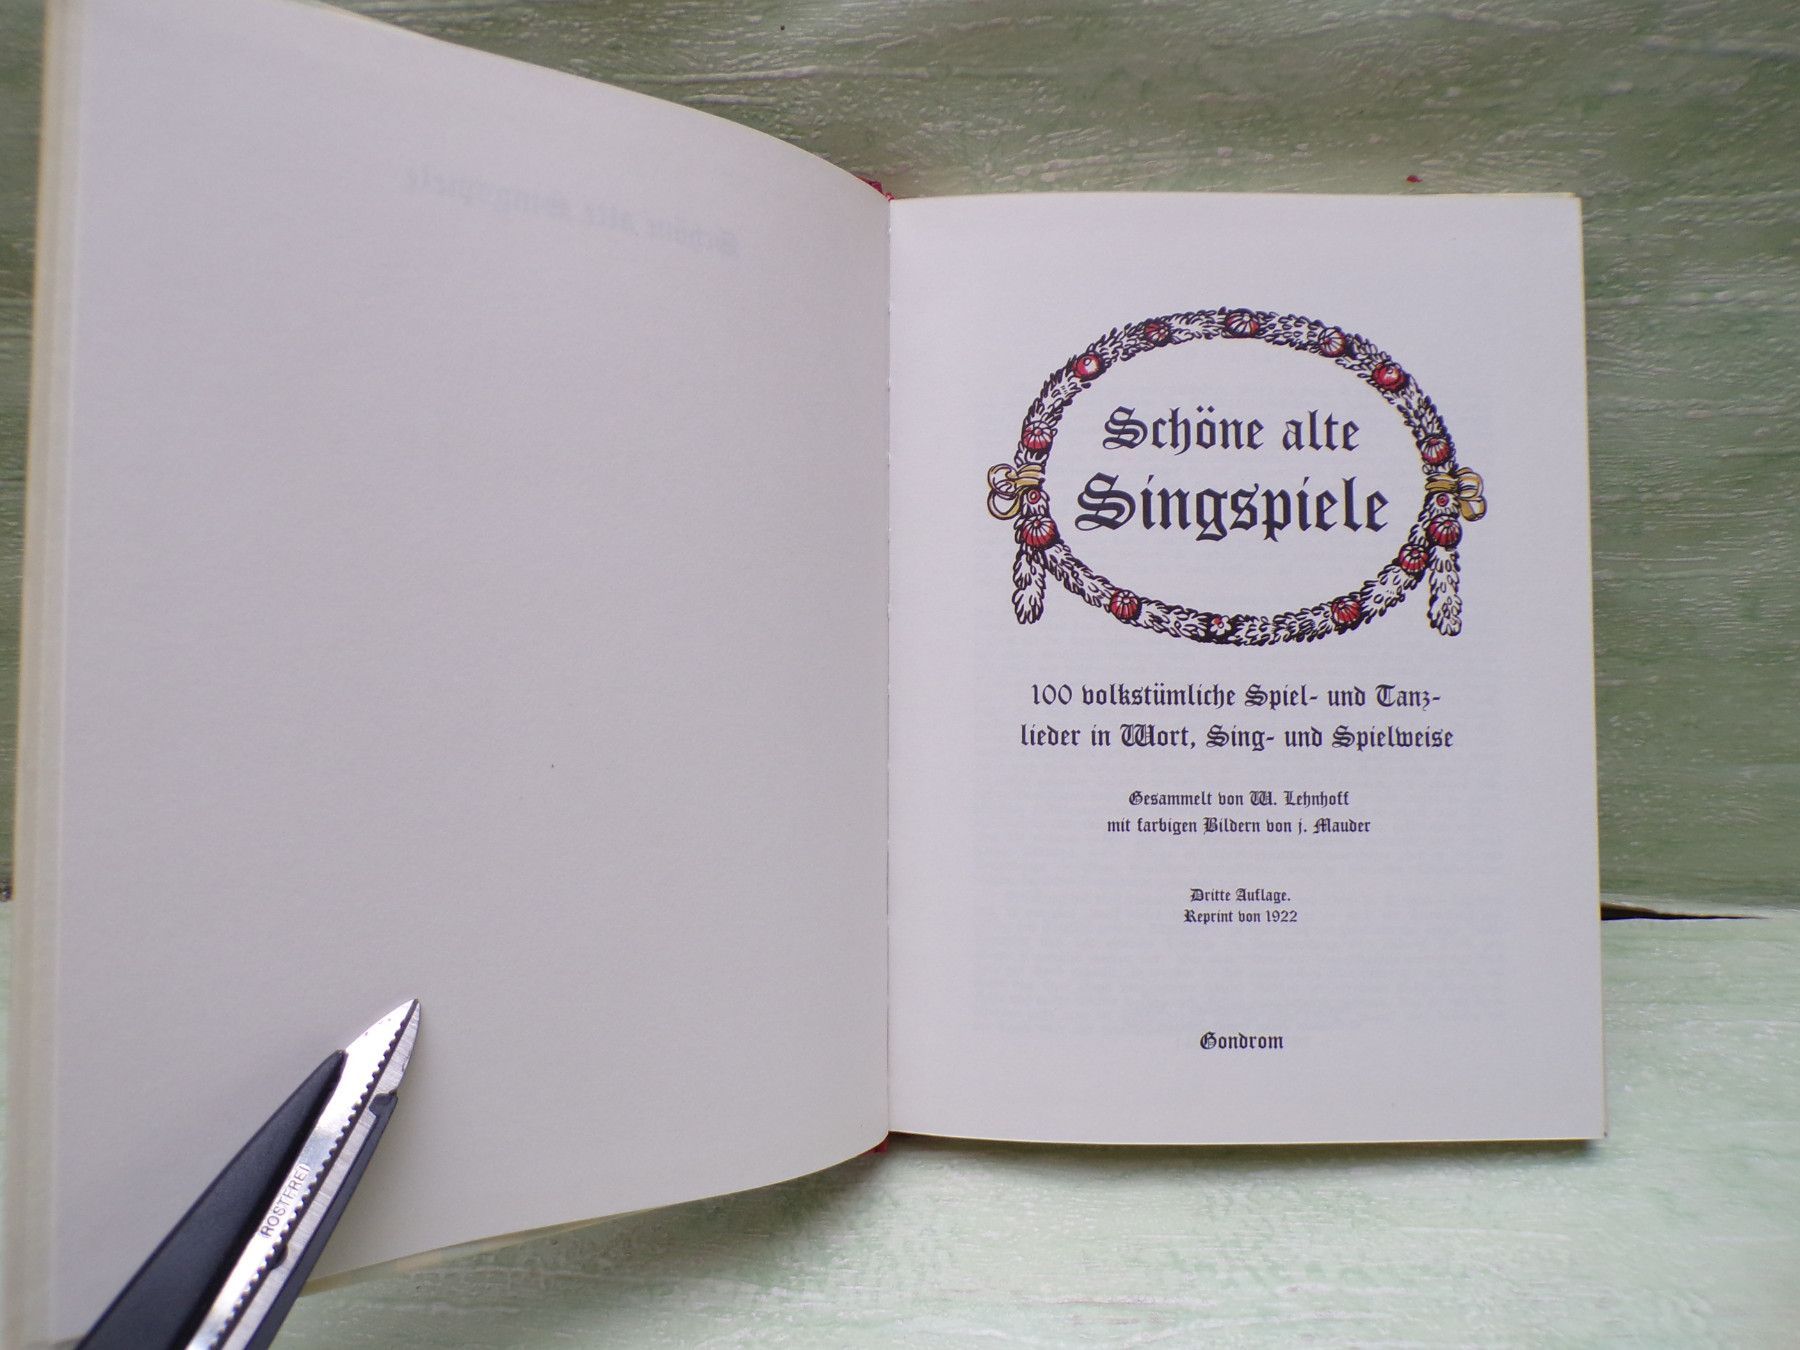 Schöne alte Singspiele
Schöne alte
Singspiele
100 volkstümliche Spiel- und Tanz-
lieder in Wort, Sing- und Spielweise
Gesammelt von W. Lehnhoff
mit farbigen Bildern von j. Mauder
Dritte Auflage.
Reprint von 1922
Gondrom
ROSTFREI